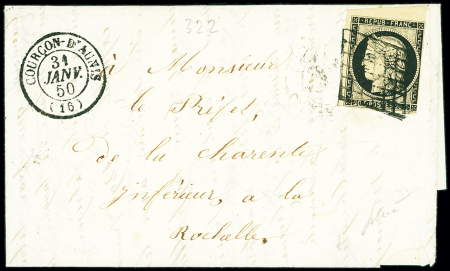 322
COURÇON-D'AUNIS
31
JANV.
50
(16)
REPUB. FRANC.
à Monsieur
le Préfet,
de la charente
inférieur, a la
Rochelle.